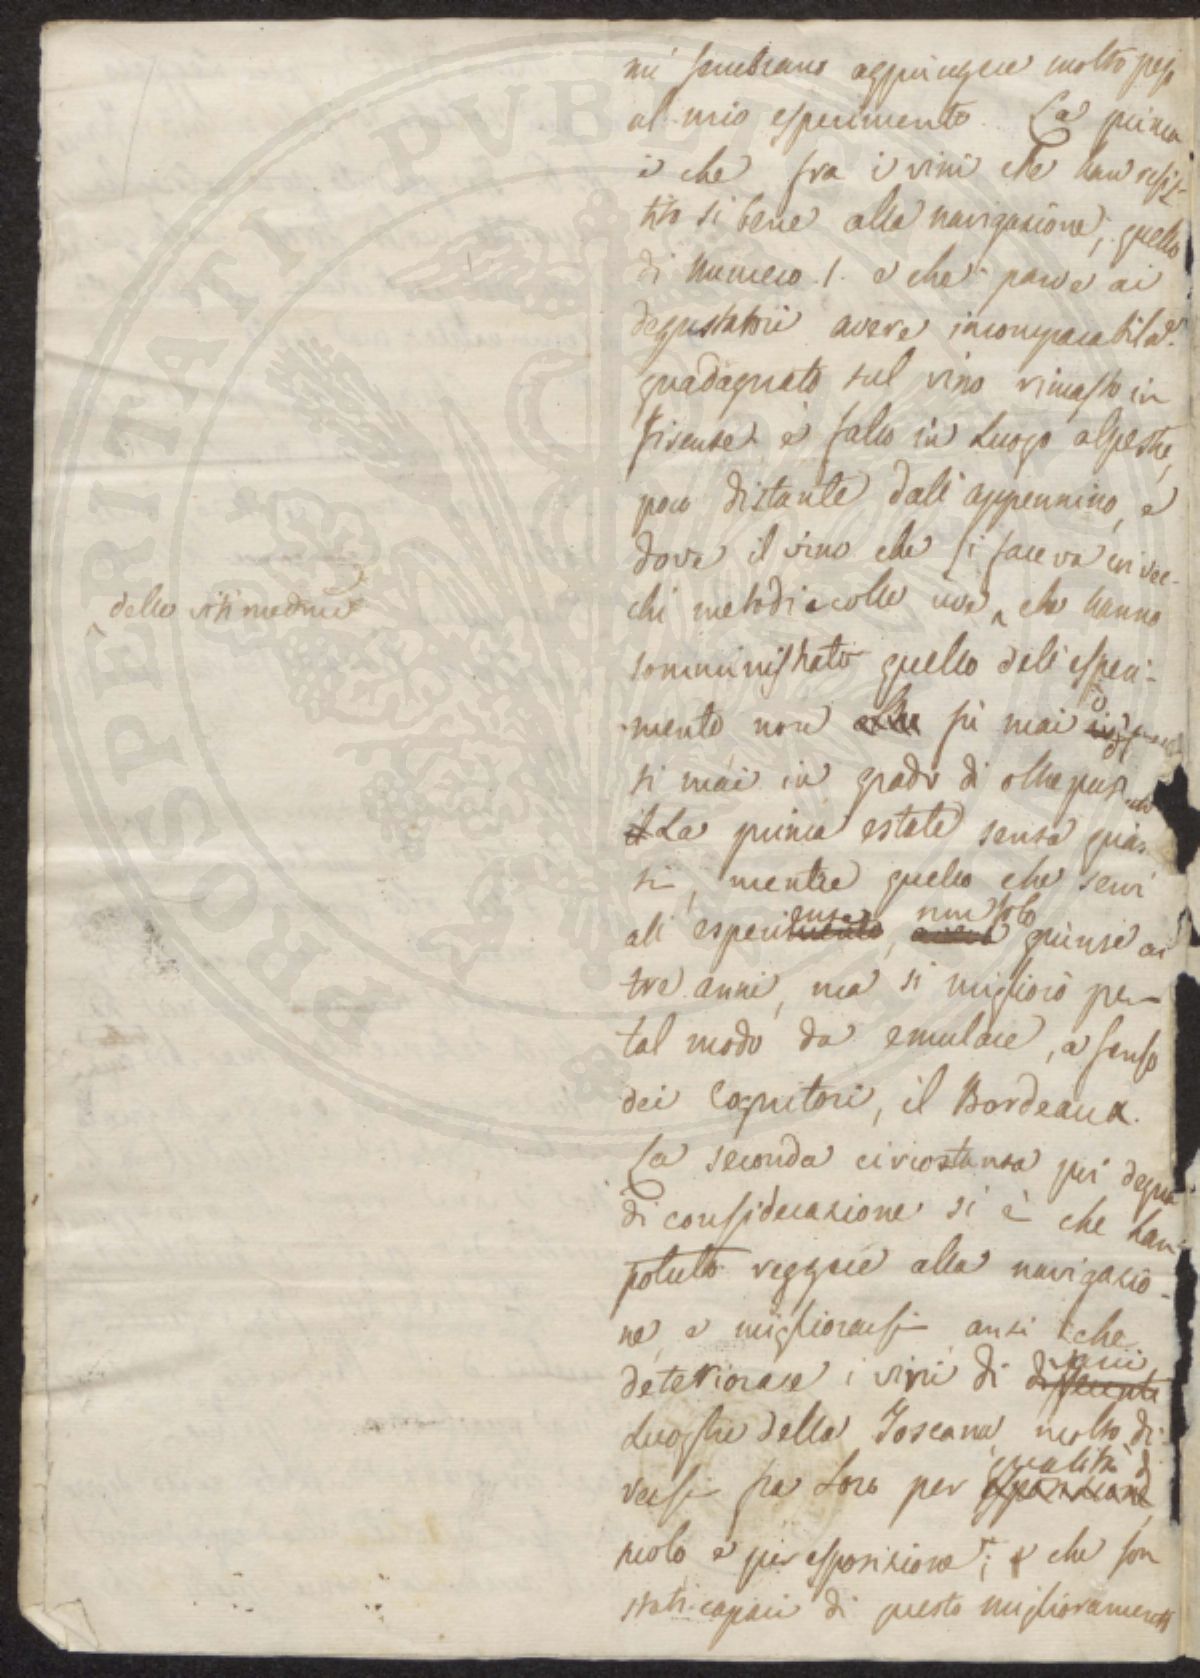 mi sembrano aggiungere molto peso
al mio esperimento. La prima
è che fra i vini che han resis-
tito sì bene alla navigazione, quello
di numero 1. e che parve ai
degustatori avere incomparabilte.
guadagnato sul vino rimasto in
Firenze è fatto in Luogo alpestre,
poco distante dall'appennino, e
dove il vino che si faceva coi vec-
chi metodi e colle uve ^ che hanno
^ delle viti medesime
somministrato quello dell'esperi-
mento non fù mai
si mai in grado di oltrepassare
La prima estate senza guas-
si, mentre quello che servì
all'esperienza, non solo giunse ai
tre anni, ma si migliorò per
tal modo da emulare, a senso
dei Cognitori, il Bordeaux.
La seconda circostanza più degna
di considerazione si è che han
potuto reggere alla navigazio-
ne, e migliorarsi anzi che
deteriorare i vini di varii
Luoghi della Toscana, molto di-
versi fra Loro per qualità di
suolo e per esposizione; e che son
stati capaci di questo miglioramento
PROSPERITATI PVBLICAE